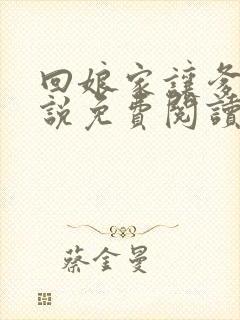 回娘家讓爹
說免費閱讀
蔡金曼